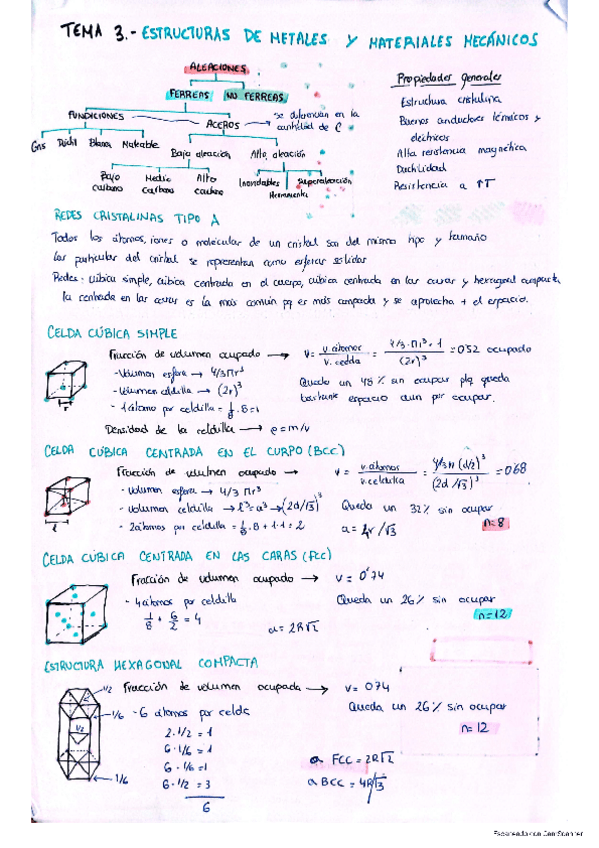 TEMA 3.- ESTRUCTURAS DE METALES Y MATERIALES MECÁNICOS
ALEACIONES
FERREAS NO FERREAS
FUNDICIONES ACEROS se diferencian en la cantidad de C
Gris Dúctil Blanca Maleable
Baja aleación Alta aleación
Bajo carbono Medio carbono Alto carbono
Inoxidables Herramienta Superaleación
Propiedades generales
Estructura cristalina
Buenos conductores térmicos y
eléctricos
Alta resistencia magnética
Ductilidad
Resistencia a ↑T
REDES CRISTALINAS TIPO A
Todos los átomos, iones o moléculas de un cristal son del mismo tipo y tamaño
las partículas del cristal se representan como esferas sólidas
Redes: cúbica simple, cúbica centrada en el cuerpo, cúbica centrada en las caras y hexagonal compacta
la centrada en las caras es la más común pq es más compacta y se aprovecha + el espacio.
CELDA CÚBICA SIMPLE
Fracción de volumen ocupado → V = v.átomos / v.celda = 4/3·πr³·1 / (2r)³ = 0'52 ocupado
- Volumen esfera → 4/3πr³
- Volumen celdilla → (2r)³
- 1 átomo por celdilla = 1/8·8 = 1
Queda un 48% sin ocupar plq queda
bastante espacio aún por ocupar.
Densidad de la celdilla → ρ = m/v
r
CELDA CÚBICA CENTRADA EN EL CURPO (BCC)
Fracción de volumen ocupado → V = v.átomos / v.celdilla = 4/3π(d/2)³ / (2d/√3)³ = 0'68
- Volumen esfera → 4/3 πr³
- Volumen celdilla → l³=a³ → (2d/√3)³
Queda un 32% sin ocupar
n=8
- 2 átomos por celdilla = 1/8·8 + 1·1 = 2
a = 4r/√3
l
CELDA CÚBICA CENTRADA EN LAS CARAS (FCC)
Fracción de volumen ocupado → V = 0'74
- 4 átomos por celdilla
Queda un 26% sin ocupar
n=12
1/8 + 6/2 = 4
a = 2R√2
ESTRUCTURA HEXAGONAL COMPACTA
1/2 Fracción de volumen ocupada → V = 0'74
1/6 - 6 átomos por celda
Queda un 26% sin ocupar
n=12
2·1/2 = 1
1/2
6·1/6 = 1
6·1/6 = 1
6·1/2 = 3
1/6
6
a FCC = 2R√2
a BCC = 4R/√3
Escaneado con CamScanner